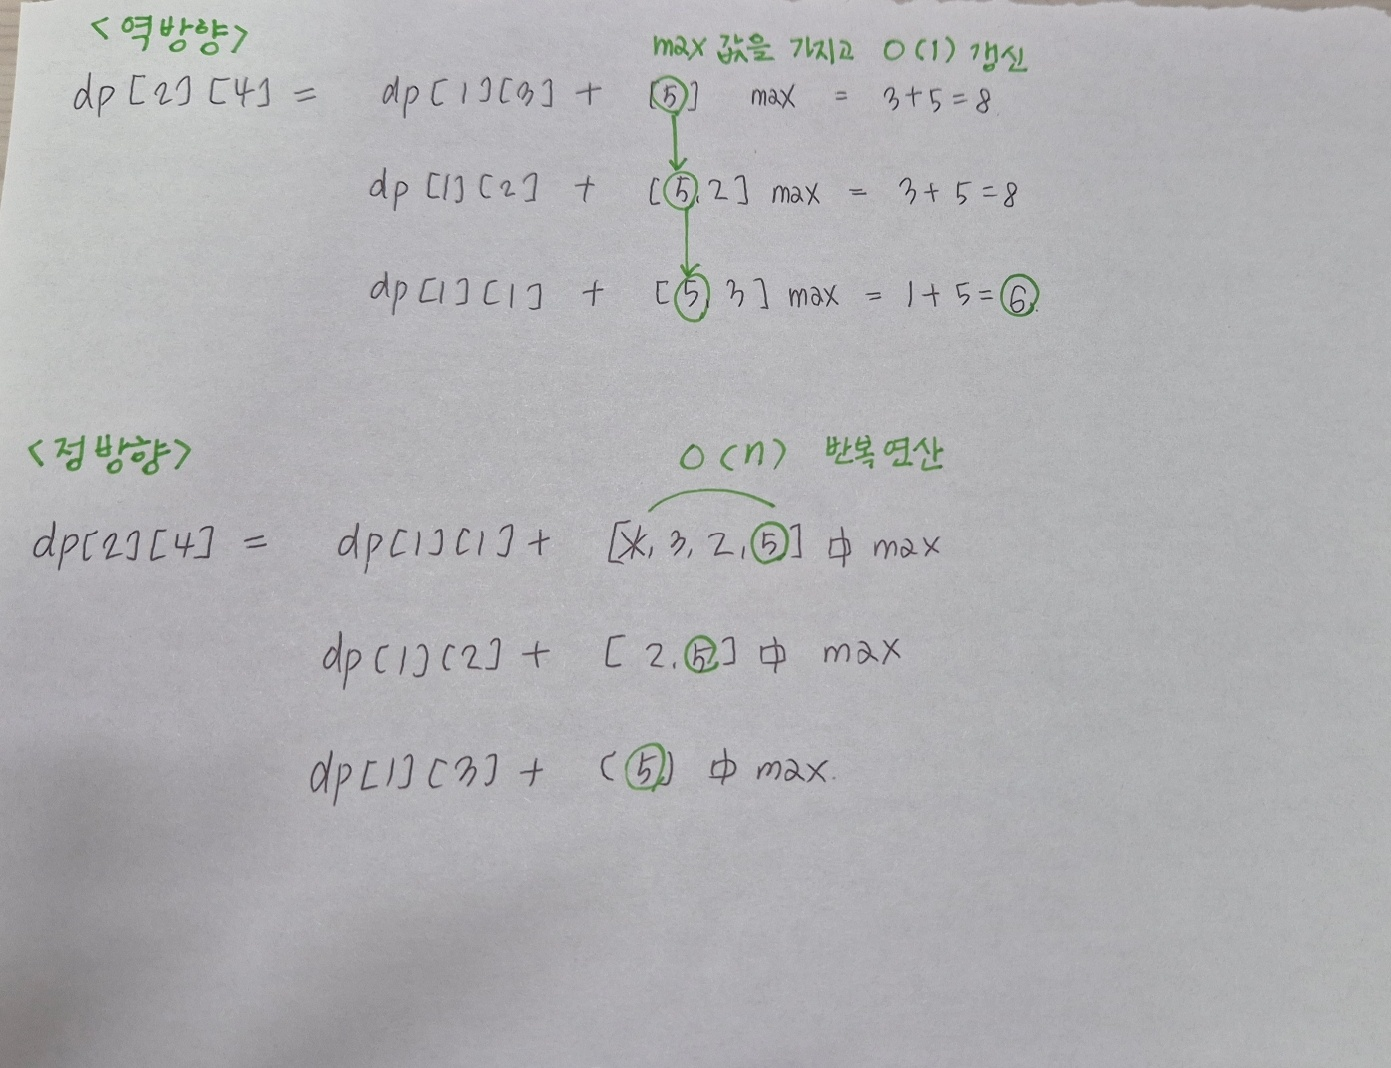 <역방향>
max 값을 가지고 O(1) 갱신
dp[2][4] = dp[1][3] + [5] max = 3+5=8
dp[1][2] + [5, 2] max = 3+5=8
dp[1][1] + [5, 3] max = 1+5=6
<정방향>
O(n) 반복연산
dp[2][4] = dp[1][1] + [3, 2, 5] 中 max
dp[1][2] + [2, 5] 中 max
dp[1][3] + (5) 中 max.